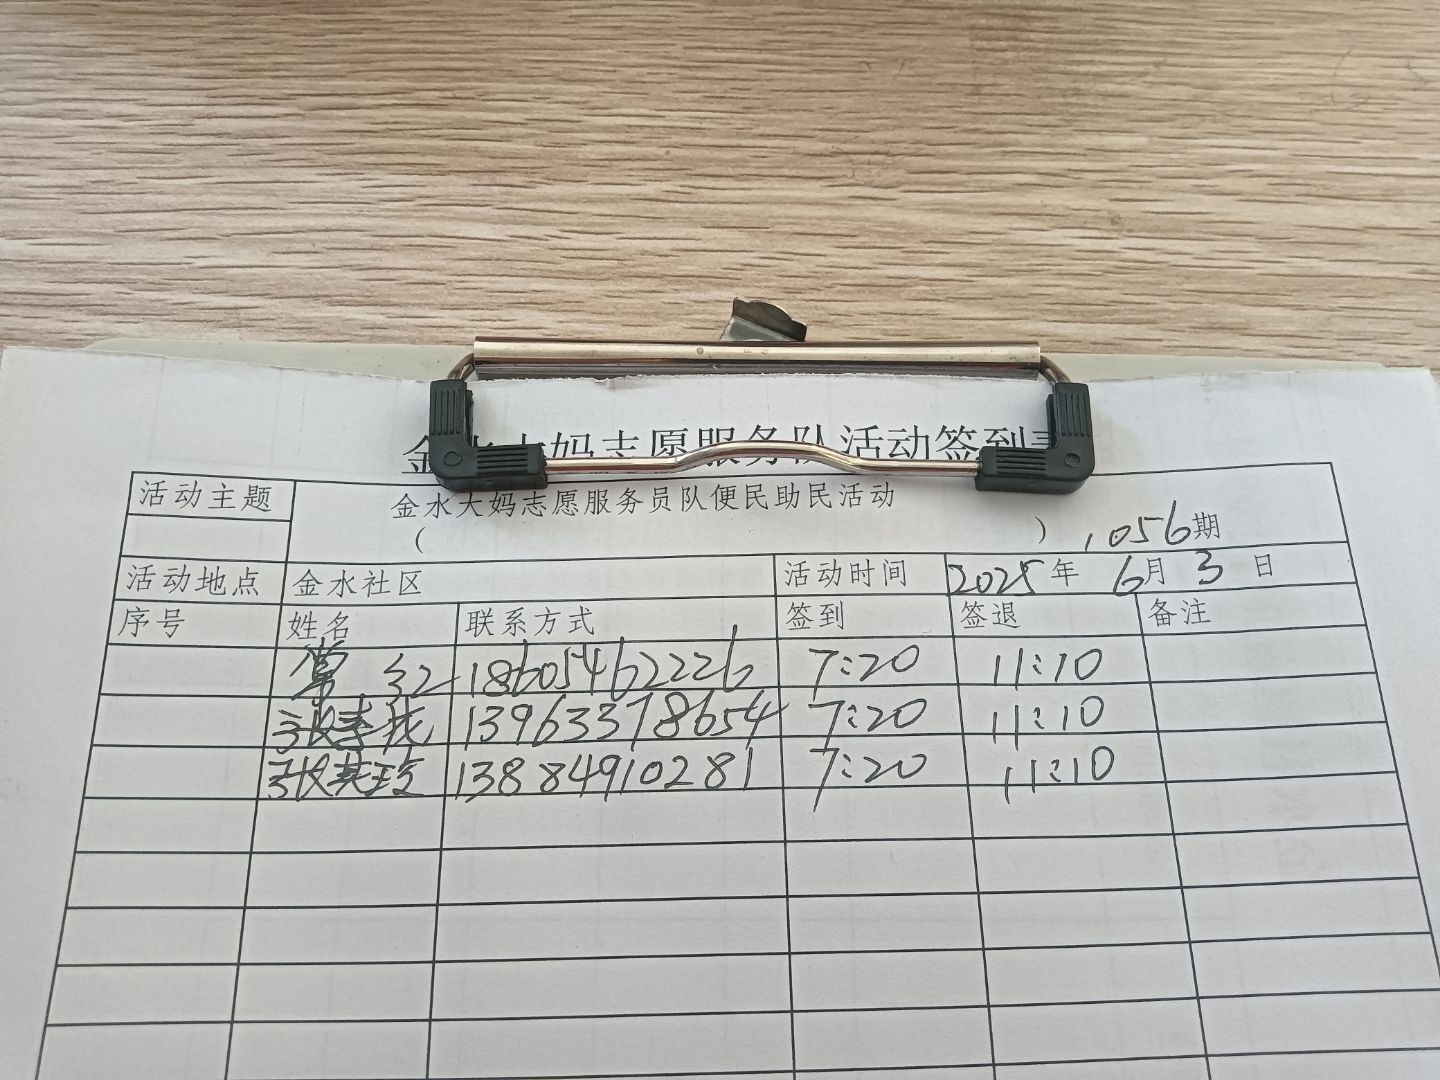 金水大妈志愿服务队活动签到表
活动主题 金水大妈志愿服务员队便民助民活动
( ) 1056期
活动地点 金水社区 活动时间 2025年 6月 3 日
序号 姓名 联系方式 签到 签退 备注
常红 18605462226 7:20 11:10
张 13963378654 7:20 11:10
张英玫 13884910281 7:20 11:10